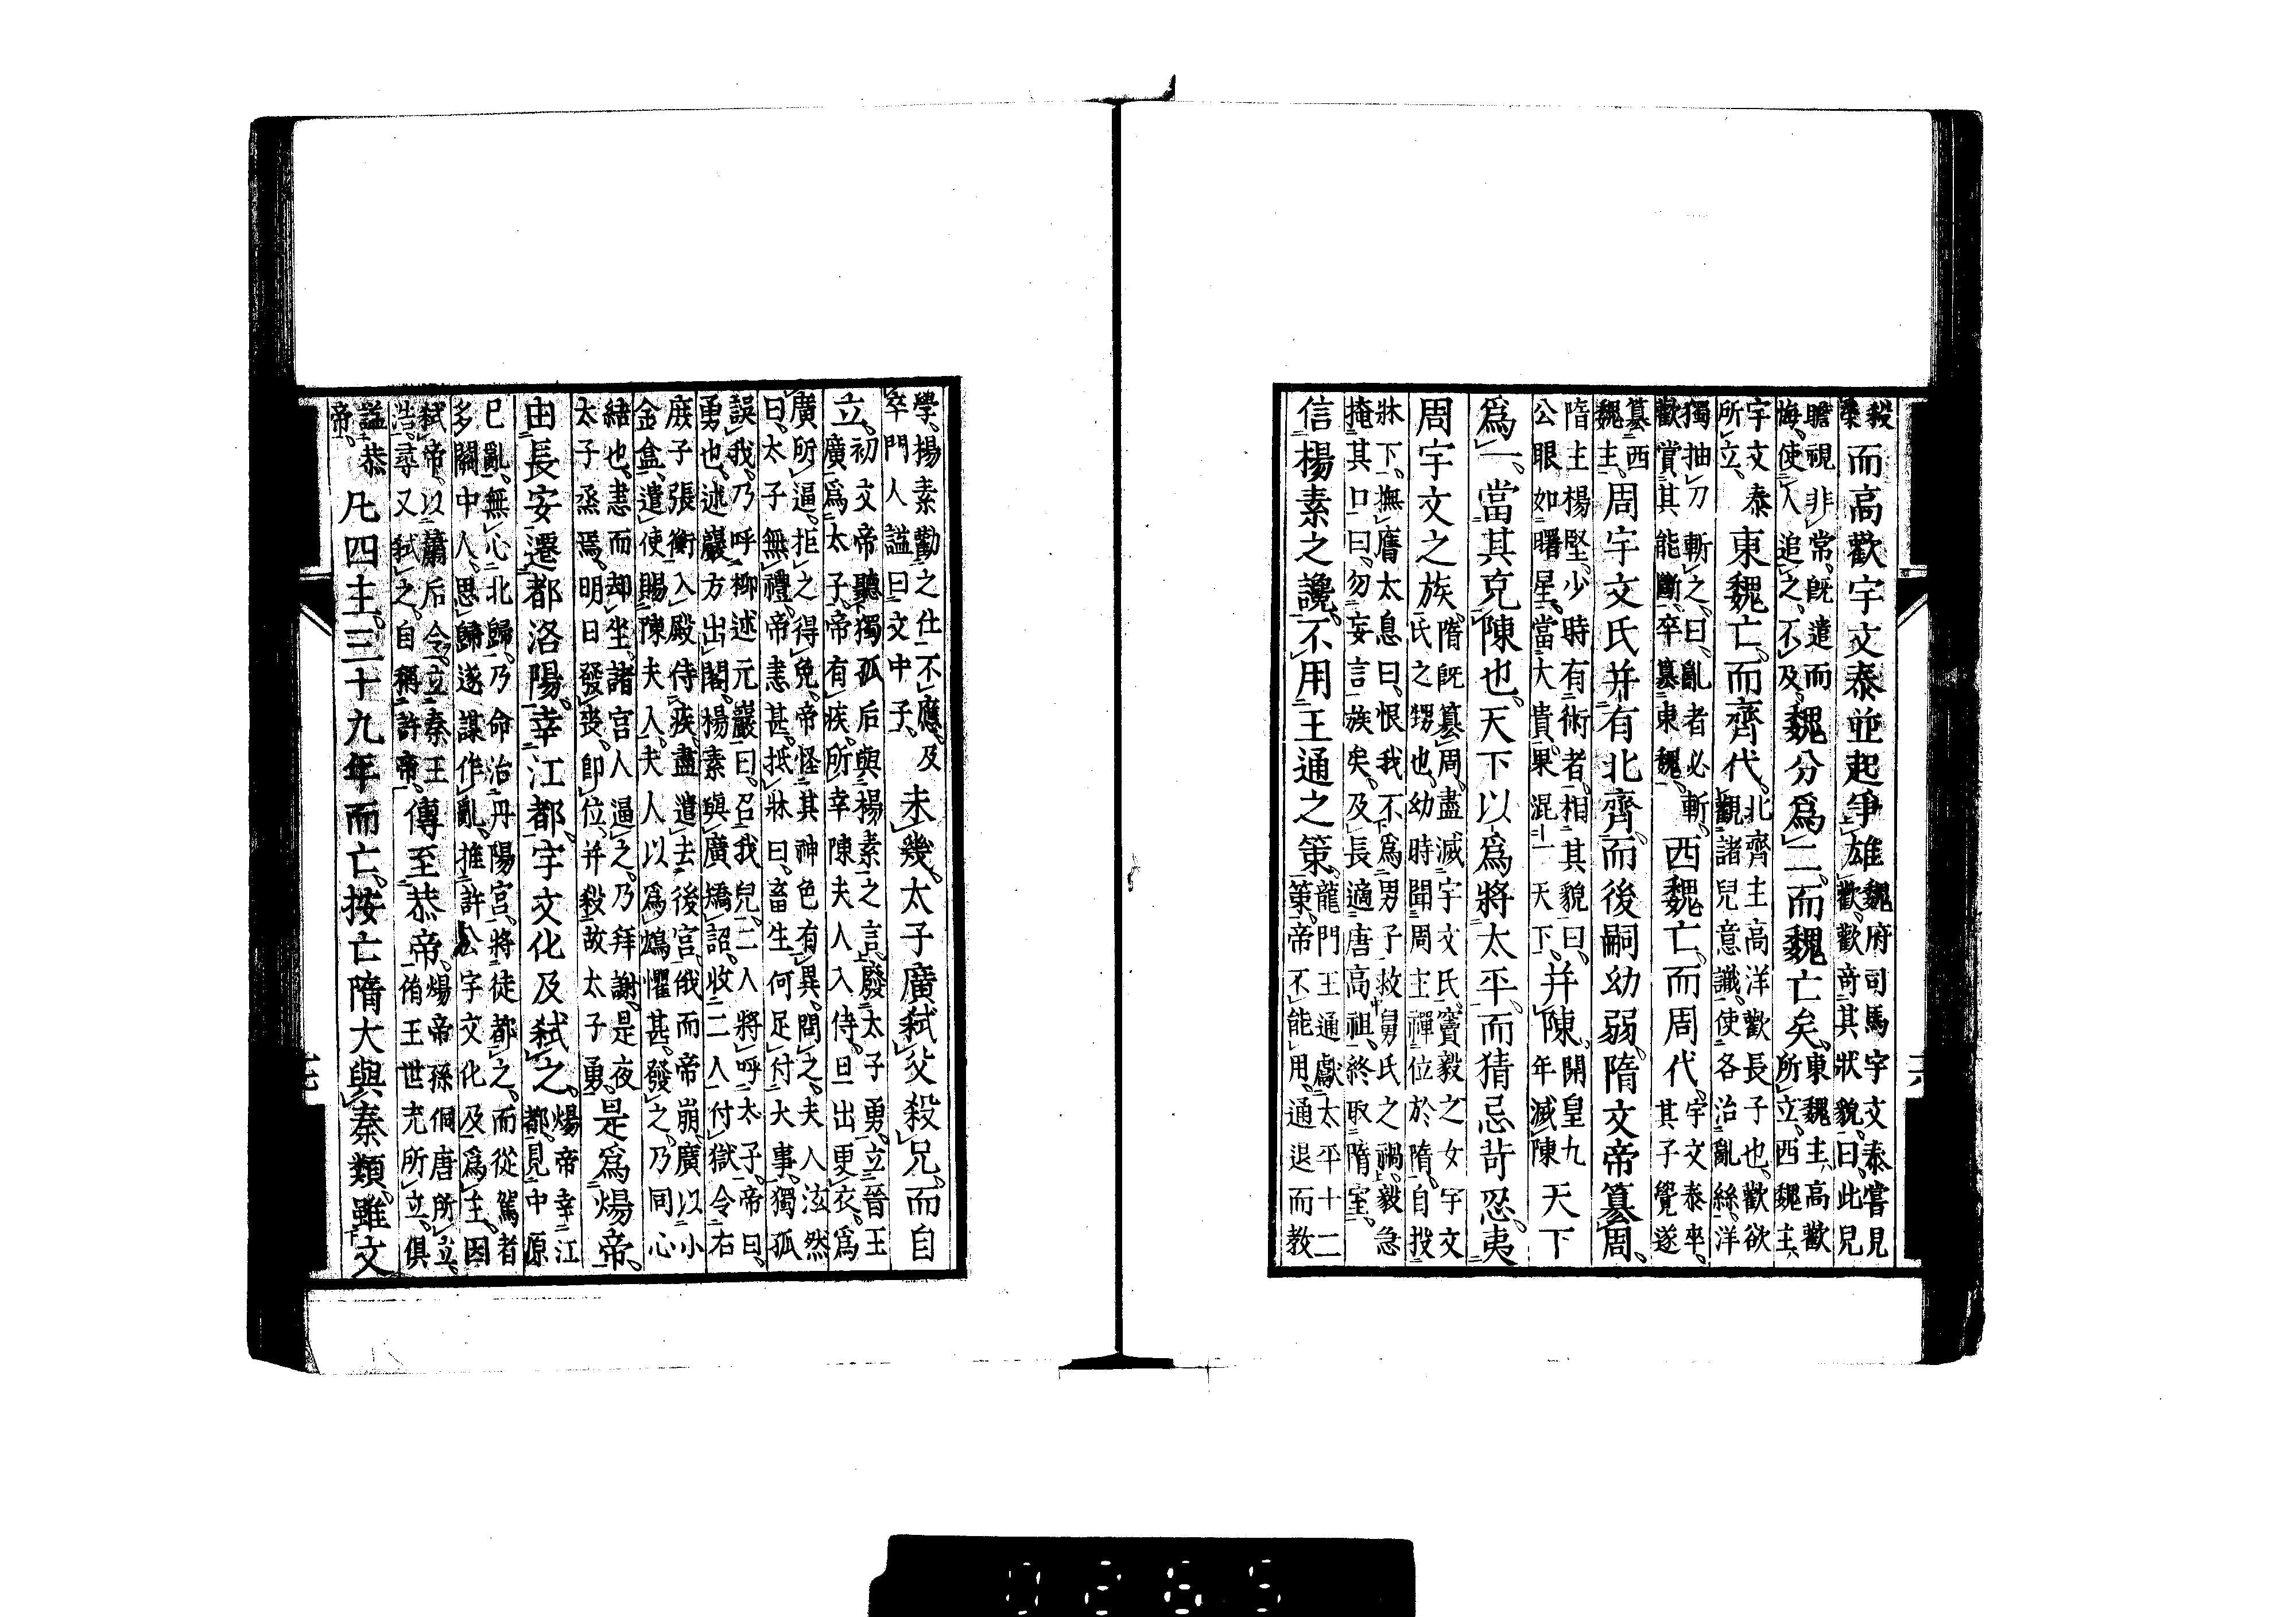 榮而高歡宇文泰並起爭雄魏府司馬宇文泰嘗見歡歡奇其狀貌曰此兒
瞻視非常既遣而悔使人追之不及魏分爲二而魏亡矣東魏主高歡所立西魏主
宇文泰所立東魏亡而齊代北齊主高洋歡長子也歡欲觀諸兒意識使各治亂絲洋
獨抽刀斬之曰亂者必斬歡賞其能斷卒篡東魏西魏亡而周代宇文泰卒其子覺遂
篡西魏主周宇文氏并有北齊而後嗣幼弱隋文帝篡周
隋主楊堅少時有術者相其貌曰公眼如曙星當大貴果混一天下并陳開皇九年滅陳天下
爲一當其克陳也天下以爲將太平而猜忌苛忍夷
周宇文之族隋既篡周盡滅宇文氏竇毅之女宇文氏之甥也幼時聞周主禪位於隋自投
牀下撫膺太息曰恨我不爲男子救舅氏之禍毅急掩其口曰勿妄言族矣及長適唐高祖終取隋室
信楊素之讒不用王通之策龍門王通獻太平十二策帝不能用通退而教
學楊素勸之仕不應及卒門人謚曰文中子未幾太子廣弒父殺兄而自
立初文帝聽獨孤后與楊素之言廢太子勇立晉王廣爲太子帝有疾所幸陳夫人入侍旦出更衣爲
廣所逼拒之得免帝怪其神色有異問之夫人泫然曰太子無禮帝恚甚抵牀曰畜生何足付大事獨孤
誤我乃呼柳述元巖曰召我兒二人將呼太子帝曰勇也述巖方出閤楊素與廣矯詔收二人付獄令右
庶子張衡入殿侍疾盡遣去後宮俄而帝崩廣以小金盒遣使賜陳夫人夫人以爲鴆懼甚發之乃同心
結也恚而却坐諸宮人逼之乃拜謝是夜太子烝焉明日發喪即位并殺故太子勇是爲煬帝
由長安遷都洛陽幸江都宇文化及弒之煬帝幸江都見中原
已亂無心北歸乃命治丹陽宮將徙都之而從駕者多關中人思歸遂謀作亂推許公宇文化及爲主因
弒帝以蕭后令立秦王浩尋又弒之自稱許帝傳至恭帝煬帝孫侗唐所立侑王世充所立俱
謚恭帝凡四主三十九年而亡按亡隋大與秦類雖文